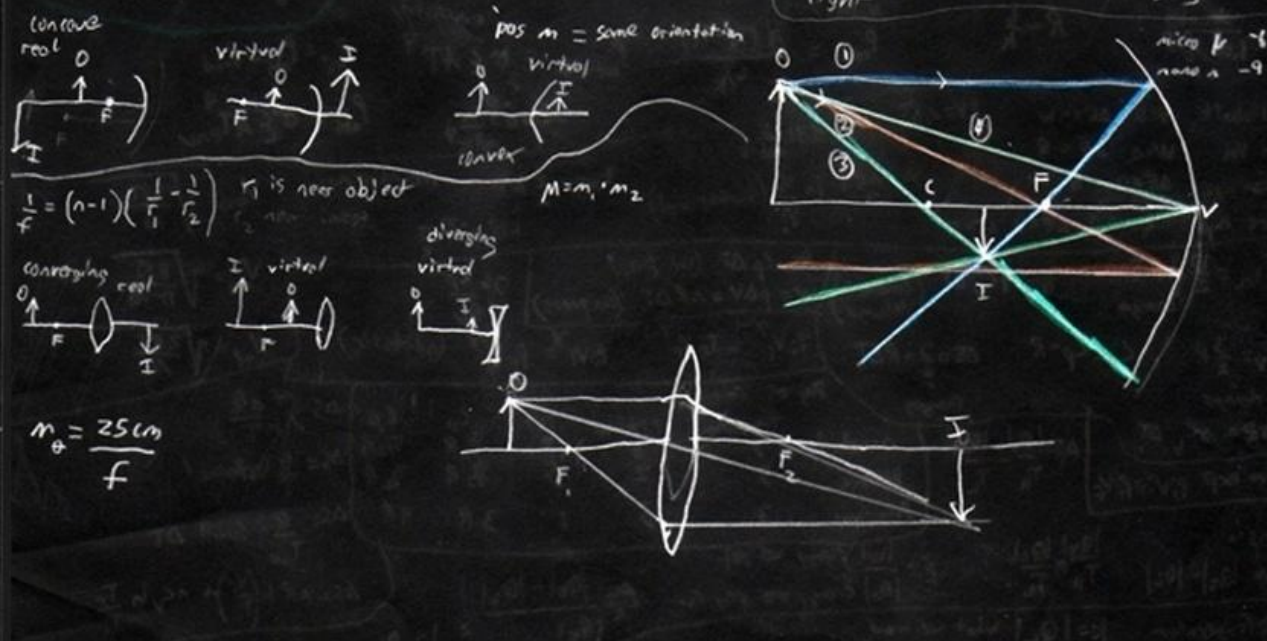 concave
real
O
F
I
virtual
O
F
I
pos m = same orientation
O
virtual
I
convex
1/f = (n-1)(1/r₁ - 1/r₂) r₁ is near object
M = m₁ · m₂
converging
real
O
F
I
I
virtual
O
F
diverging
virtual
O
I
m_θ = 25cm/f
O
F₁
F₂
I
micro μ -6
nano n -9
O
①
②
③
④
C
F
V
I